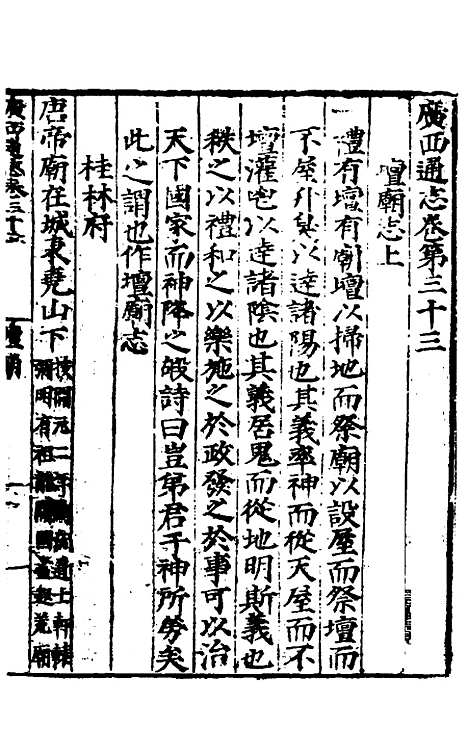 廣西通志卷第三十三
壇廟志上
禮有壇有廟壇以掃地而祭廟以設屋而祭壇而
不屋升臭以達諸陽也其義率神而從天屋而不
壇灌鬯以達諸陰也其義居鬼而從地明斯義也
秩之以禮和之以樂施之於政發之於事可以治
天下國家而神降之嘏詩曰豈弟君子神所勞矣
此之謂也作壇廟志
桂林府
唐帝廟在城東堯山下
廣西通志卷三十六
壇廟
一